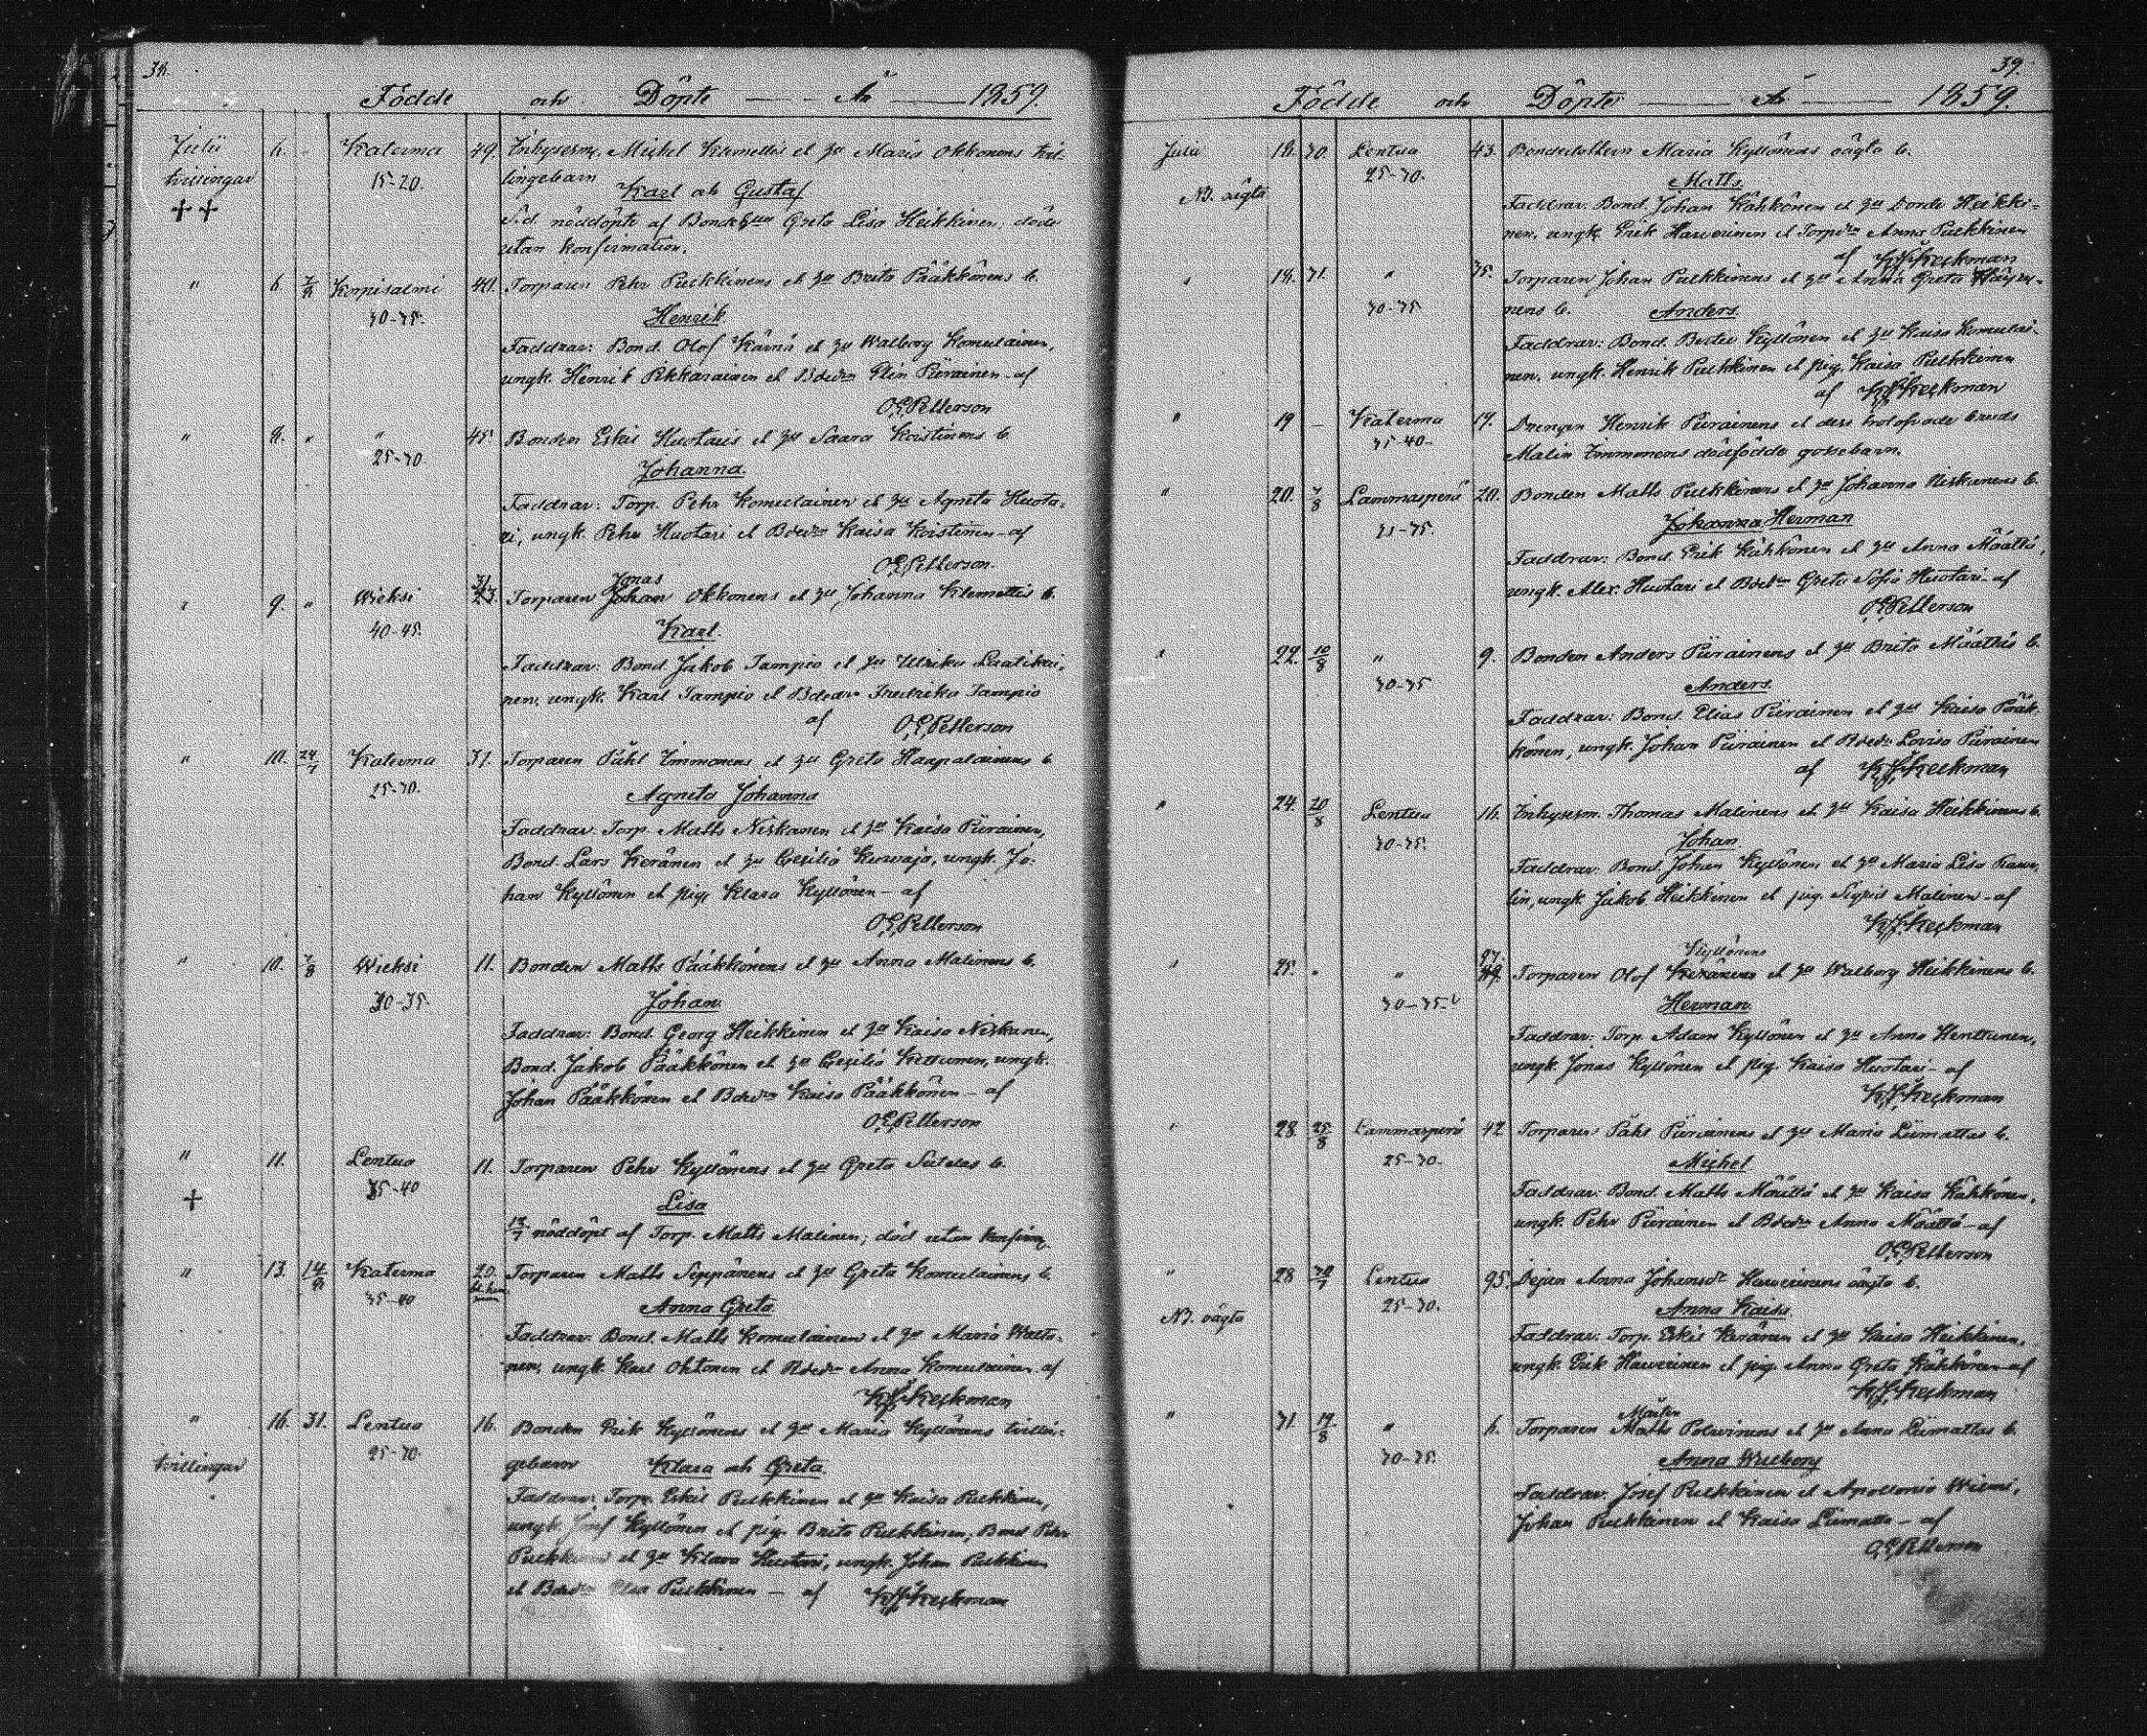 38.
Födde och Döpte År 1859.
Julii 6. - Katerma 49. Inhysesm. Michel Klemettis et hu Maria Okkonens tvil-
tvillingar 15-20. lingebarn
Karl ah Gustaf
++ nöddöpte af Bonde hu Greta Lisa Heikkinen, döde
utan konfirmation.
" 6. 7/8 Korpisalmi 40. Torparen Pehr Pulkkinens et hu Brita Pääkkönens b.
30-35. Henrik
Faddrar: Bond. Olof Kärnä et hu Walborg Komulainen,
ungk. Henrik Pikkarainen et Bdedr Elin Piirainen - af
O.E.Petterson
" 8. " " 45 Bonden Eskil Huotaris et hu Saara Koistinens b.
25-30. Johanna
Faddrar: Torp. Pehr Komulainen et hu Agneta Huota-
ri, ungk. Pehr Huotari et Bdedr Kaisa Koistinen - af
O.E.Petterson.
31. Jonas
" 9. " Wieksi 23 Torparen Johan Okkonens et hu Johanna Klemettis b.
40-45. Karl.
Faddrar: Bond. Jakob Tampio et hu Ulrika Laatikai-
nen, ungk. Karl Tampio et Bdedr Fredrika Tampio
af O.E.Petterson
" 10. 24/7 Katerma 31. Torparen Påhl Immonens et hu Greta Haapalainens b.
25-30. Agneta Johanna
Faddrar: Torp. Matts Niskanen et hu Kaisa Piirainen,
Bond. Lars Keränen et hu Cecilia Kurvaja, ungk. Jo-
han Kyllönen et pig. Klara Kyllönen - af
O.E.Petterson
" 10. 7/8 Wieksi 11. Bonden Matts Pääkkönens et hu Anna Malinens b.
30-35. Johan.
Faddrar: Bond. Georg Heikkinen et hu Kaisa Niskanen,
Bond. Jakob Pääkkönen et hu Cecilia Kettunen, ungk.
Johan Pääkkönen et Bdedr Kaisa Pääkkönen - af
O.E.Petterson
" 11. Lentua 11. Torparen Pehr Kyllönens et hu Greta Sutelas b.
+ 35-40 Lisa
nöddöpt af Torp. Matts Malinen; död utan konfirm.
" 13. 14/8 Katerma 20. Torparen Matts Seppänens et hu Greta Komulainens b.
35-40 Anna Greta
Faddrar: Bond. Matts Komulainen et hu Maria
nen, ungk. Karl Oktonen et Bdedr Anna Komulainen af
K.J.Keckman
" 16. 31. Lentua 16. Bonden Erik Kyllönens et hu Maria Kyllönens tvillin-
tvillingar 25-30. gebarn Klara ah Greta.
Faddrar: Torp. Eskil Pulkkinen et hu Kaisa Pulkkinen,
ungk. Josef Kyllönen et pig. Brita Pulkkinen; Bond Pehr
Pulkkinen et hu Klara Huotari, ungk. Johan Pulkkinen
et Bdedr Elsa Pulkkinen - af K.J.Keckman
39.
Födde och Döpte År 1859.
Julii 18. 30. Lentua 43. Bondedottern Maria Kyllönens oägta b.
NB. oägta 25-30. Matts.
Faddrar: Bond. Johan Kähkönen et hu Dordi Heikki-
nen, ungk. Erik Haverinen et Torpdr Anna Pulkkinen
af K.J.Keckman
" 18. 31. " 35. Torparen Johan Pulkkinens et hu Anna Greta
30-35 nens b. Anders.
Faddrar: Bond. Bertil Kyllönen et hu Kaisa Komulai-
nen, ungk. Henrik Pulkkinen et pig. Kaisa Pulkkinen
af K.J.Keckman
" 19 - Katerma 19. Drengen Henrik Piirainens et dess trolofvade bruds
35-40- Malin Immonens dödfödde gossebarn.
" 20. 7/8 Lammasperä 20. Bonden Matts Pulkkinens et hu Johanna Niskanens b.
31-35. Johanna Herman
Faddrar: Bond. Erik Kähkönen et hu Anna Määttä,
ungk. Alex. Huotari et Bdedr Greta Sofia Huotari - af
O.E.Petterson
" 22. 10/8 " 9. Bonden Anders Piirainens et hu Brita Määttäs b.
30-35 Anders.
Faddrar: Bond. Elias Piirainen et hu Kaisa Pääk-
könen, ungk. Johan Piirainen et Bdedr Lovisa Piirainen
af K.J.Keckman
" 24. 20/8 Lentua 16. Inhysesm. Thomas Malinens et hu Kaisa Heikkinens b.
30-35. Johan
Faddrar: Bond Johan Kyllönen et hu Maria Lisa
lin, ungk. Jakob Heikkinen et pig. Sigrid Malinen - af
K.J.Keckman
97. Kyllönens
" 25. " " 49. Torparen Olof Keränens et hu Walborg Heikkinens b.
30-35. Herman
Faddrar: Torp. Adam Kyllönen et hu Anna Henttunen,
ungk. Jonas Kyllönen et pig. Kaisa Huotari - af
K.J.Keckman
" 28. 25/8 Lammasperä 42 Torparen Påhl Piirainens et hu Maria Liimattas b.
25-30. Michel
Faddrar: Bond. Matts Määttä et hu Kaisa Kähkönen,
ungk. Pehr Piirainen et Bdedr Anna Määttä - af
O.E.Petterson
" 28 30/7 Lentua 95. Dejan Anna Johansdr Haverinens oägta b.
NB. oägta 25-30. Anna Kaisa.
Faddrar: Torp. Eskil Keränen et hu Kaisa Heikkinen,
ungk. Erik Haverinen et pig. Anna Greta Kähkönen af
K.J.Keckman
Mårten
" 31. 19/8 " 6. Torparen Matts Polvinens et hu Anna Liimattas b.
30-35 Anna Walborg
Faddrar: Josef Pulkkinen et Apollonia Wilmi,
Johan Pulkkinen et Kaisa Liimatta - af
O.E.Petterson